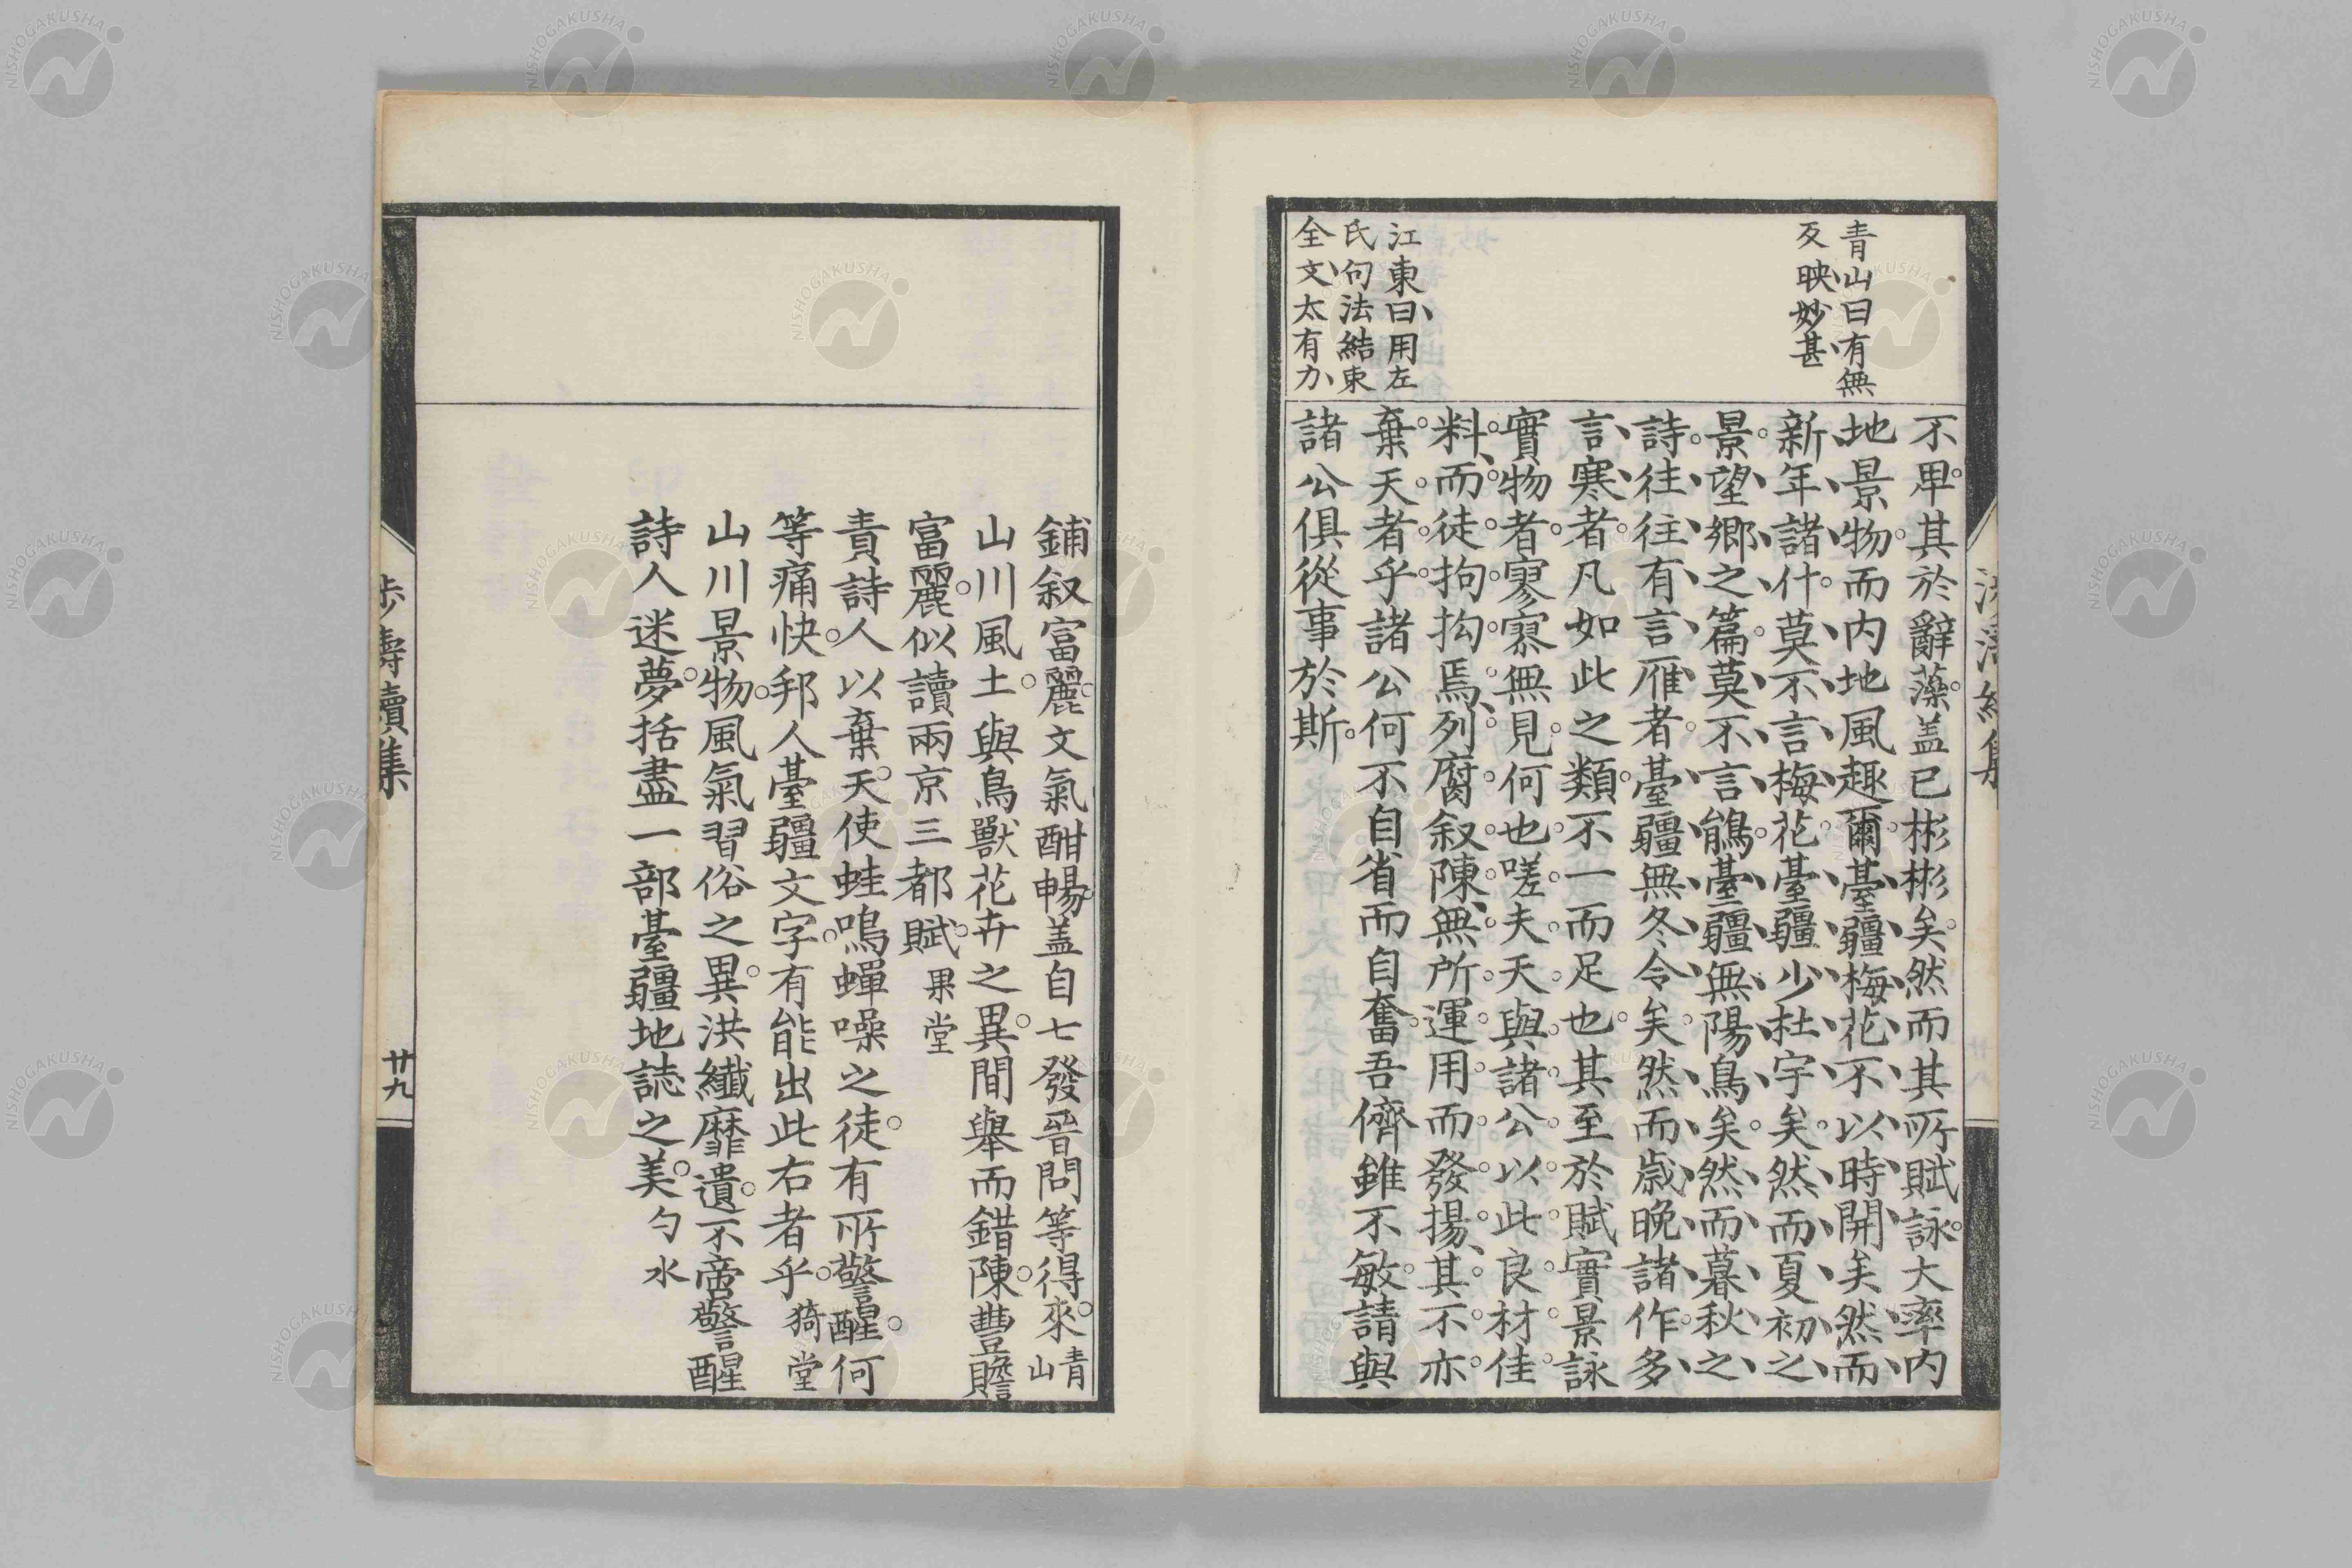 青山曰有無
反映妙甚
江東曰用左
氏句法結束
全文太有力
不卑其於辭藻盖已彬彬矣然而其所賦詠大率内
地景物而内地風趣爾臺疆梅花不以時開矣然而
新年諸什莫不言梅花臺疆少杜宇矣然而夏初之
景望鄉之篇莫不言鵑臺疆無陽鳥矣然而暮秋之
詩往往有言雁者臺疆無冬令矣然而歲晚諸作多
言寒者凡如此之類不一而足也其至於賦實景詠
實物者寥寥無見何也嗟夫天與諸公以此良材佳
料而徒拘拘焉列腐叙陳無所運用而發揚其不亦
棄天者乎諸公何不自省而自奮吾儕雖不敏請與
諸公俱從事於斯
鋪叙富麗文氣酣暢盖自七發晉問等得來 青山
山川風土與鳥獸花卉之異間舉而錯陳豐贍
富麗似讀兩京三都賦 果堂
責詩人以棄天使蛙鳴蟬噪之徒有所警醒何
等痛快邦人臺疆文字有能出此右者乎 猗堂
山川景物風氣習俗之異洪纖靡遺不啻警醒
詩人迷夢括盡一部臺疆地誌之美 勺水
濤續集
廿九
NISHOGAKUSHA